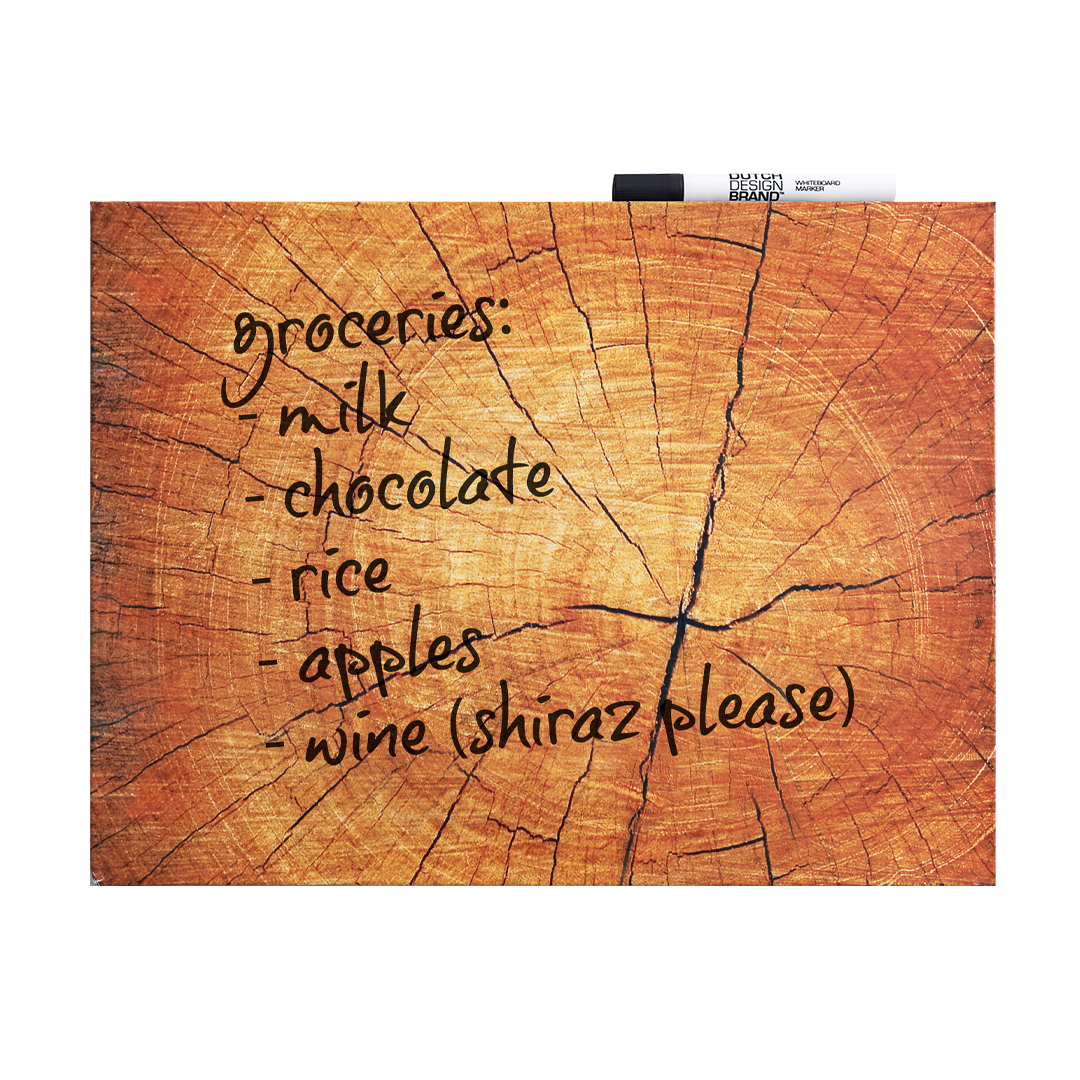 DUTCH
DESIGN
BRAND™
WHITEBOARD
MARKER
groceries:
- milk
- chocolate
- rice
- apples
- wine (shiraz please)